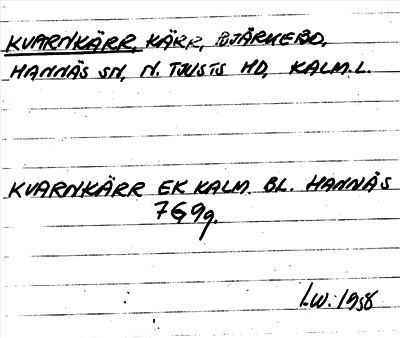 KVARNKÄRR, KÄRR, BJÄRKEBO,
HANNÄS SN, N. TJUSTS HD, KALM.L.
KVARNKÄRR EK KALM. BL. HANNÄS
7G9g.
L.W. 1958